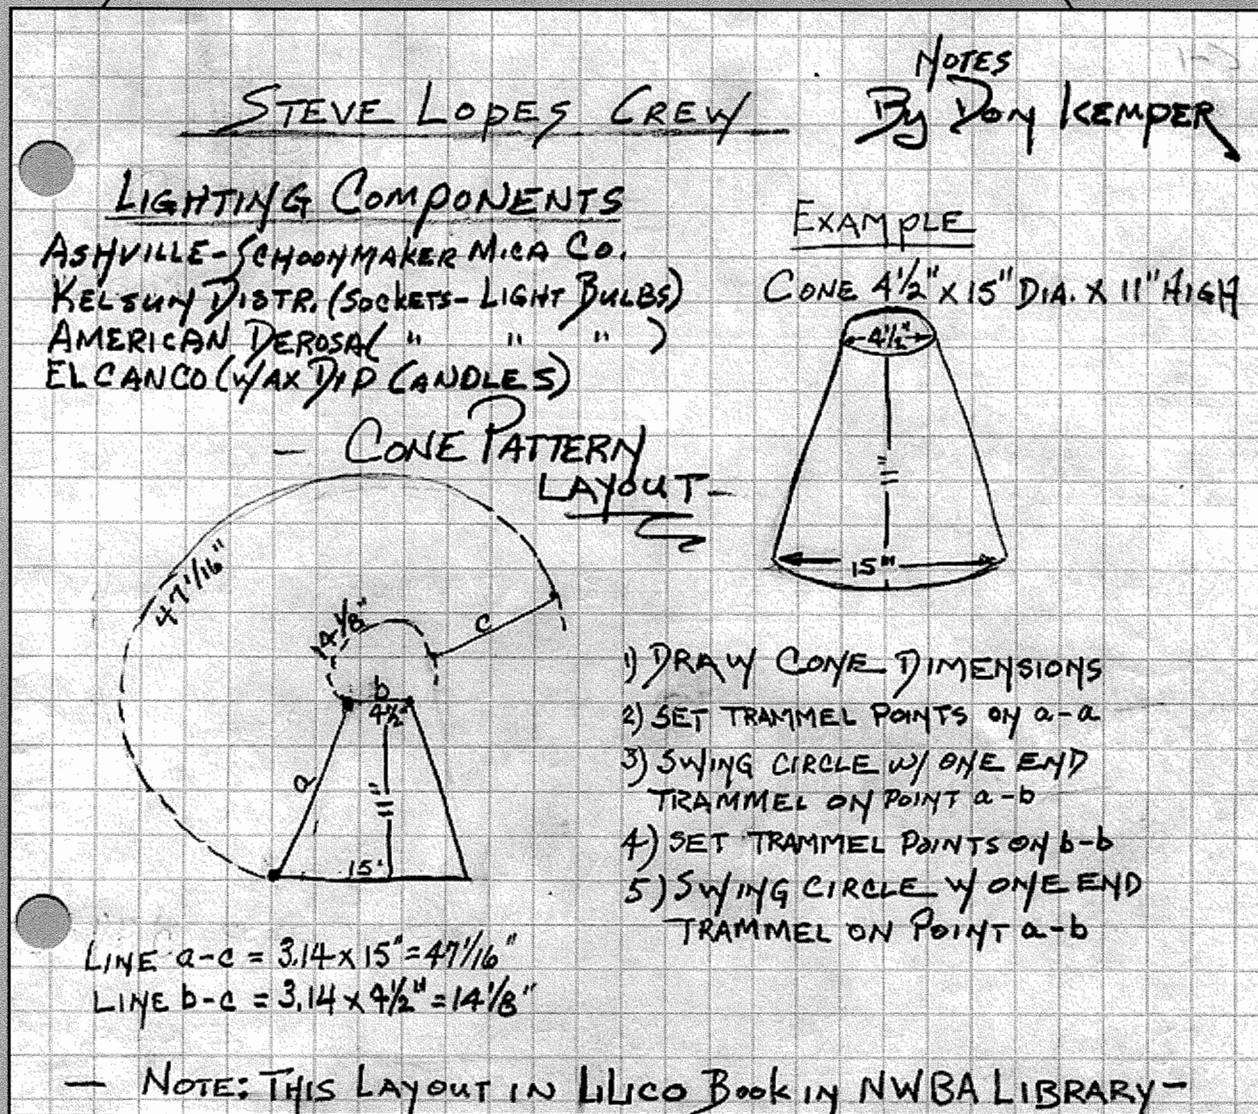 NOTES
STEVE LOPES CREW
By Don KEMPER
LIGHTING COMPONENTS
ASHVILLE-SCHOONMAKER MICA CO.
KELSUN DISTR. (SOCKETS-LIGHT BULBS)
AMERICAN DEROSA ( " " " )
ELCANCO (WAX DIP CANDLES)
EXAMPLE
CONE 4½" x 15" DIA. x 11" HIGH
4½"
11"
15"
- CONE PATTERN
LAYOUT -
47 1/16"
14 1/8"
c
b
4½"
a
11"
15"
1) DRAW CONE DIMENSIONS
2) SET TRAMMEL POINTS ON a-a
3) SWING CIRCLE W/ ONE END
TRAMMEL ON POINT a-b
4) SET TRAMMEL POINTS ON b-b
5) SWING CIRCLE W ONE END
TRAMMEL ON POINT a-b
LINE a-c = 3.14 x 15" = 47 1/16"
LINE b-c = 3.14 x 4½" = 14 1/8"
- NOTE: THIS LAYOUT IN LILICO BOOK IN NWBA LIBRARY -